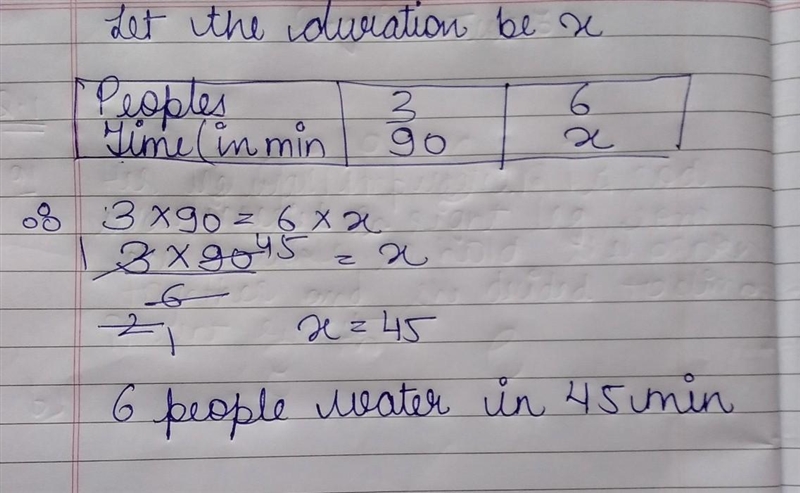 Let the duration be x
Peoples 3 6
Time (in min 90 x
∴ 3 × 90 = 6 × x
1 3 × 90 45 = x
6
2 1 x = 45
6 people water in 45 min